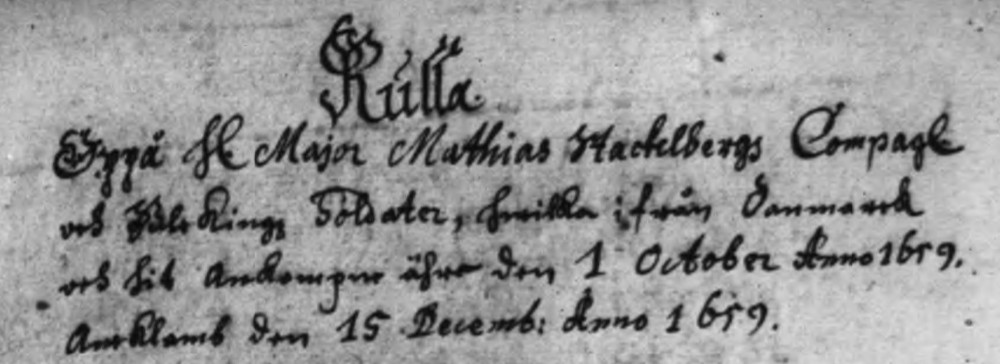 Rulla
Oppå H Major Mathias Stackelbergs Compagl
och Soldater, hwilka ifrån Danmarck
och hit Ankompne ähre den 1 October Anno 1659.
Ancklamb den 15 Decemb: Anno 1659.